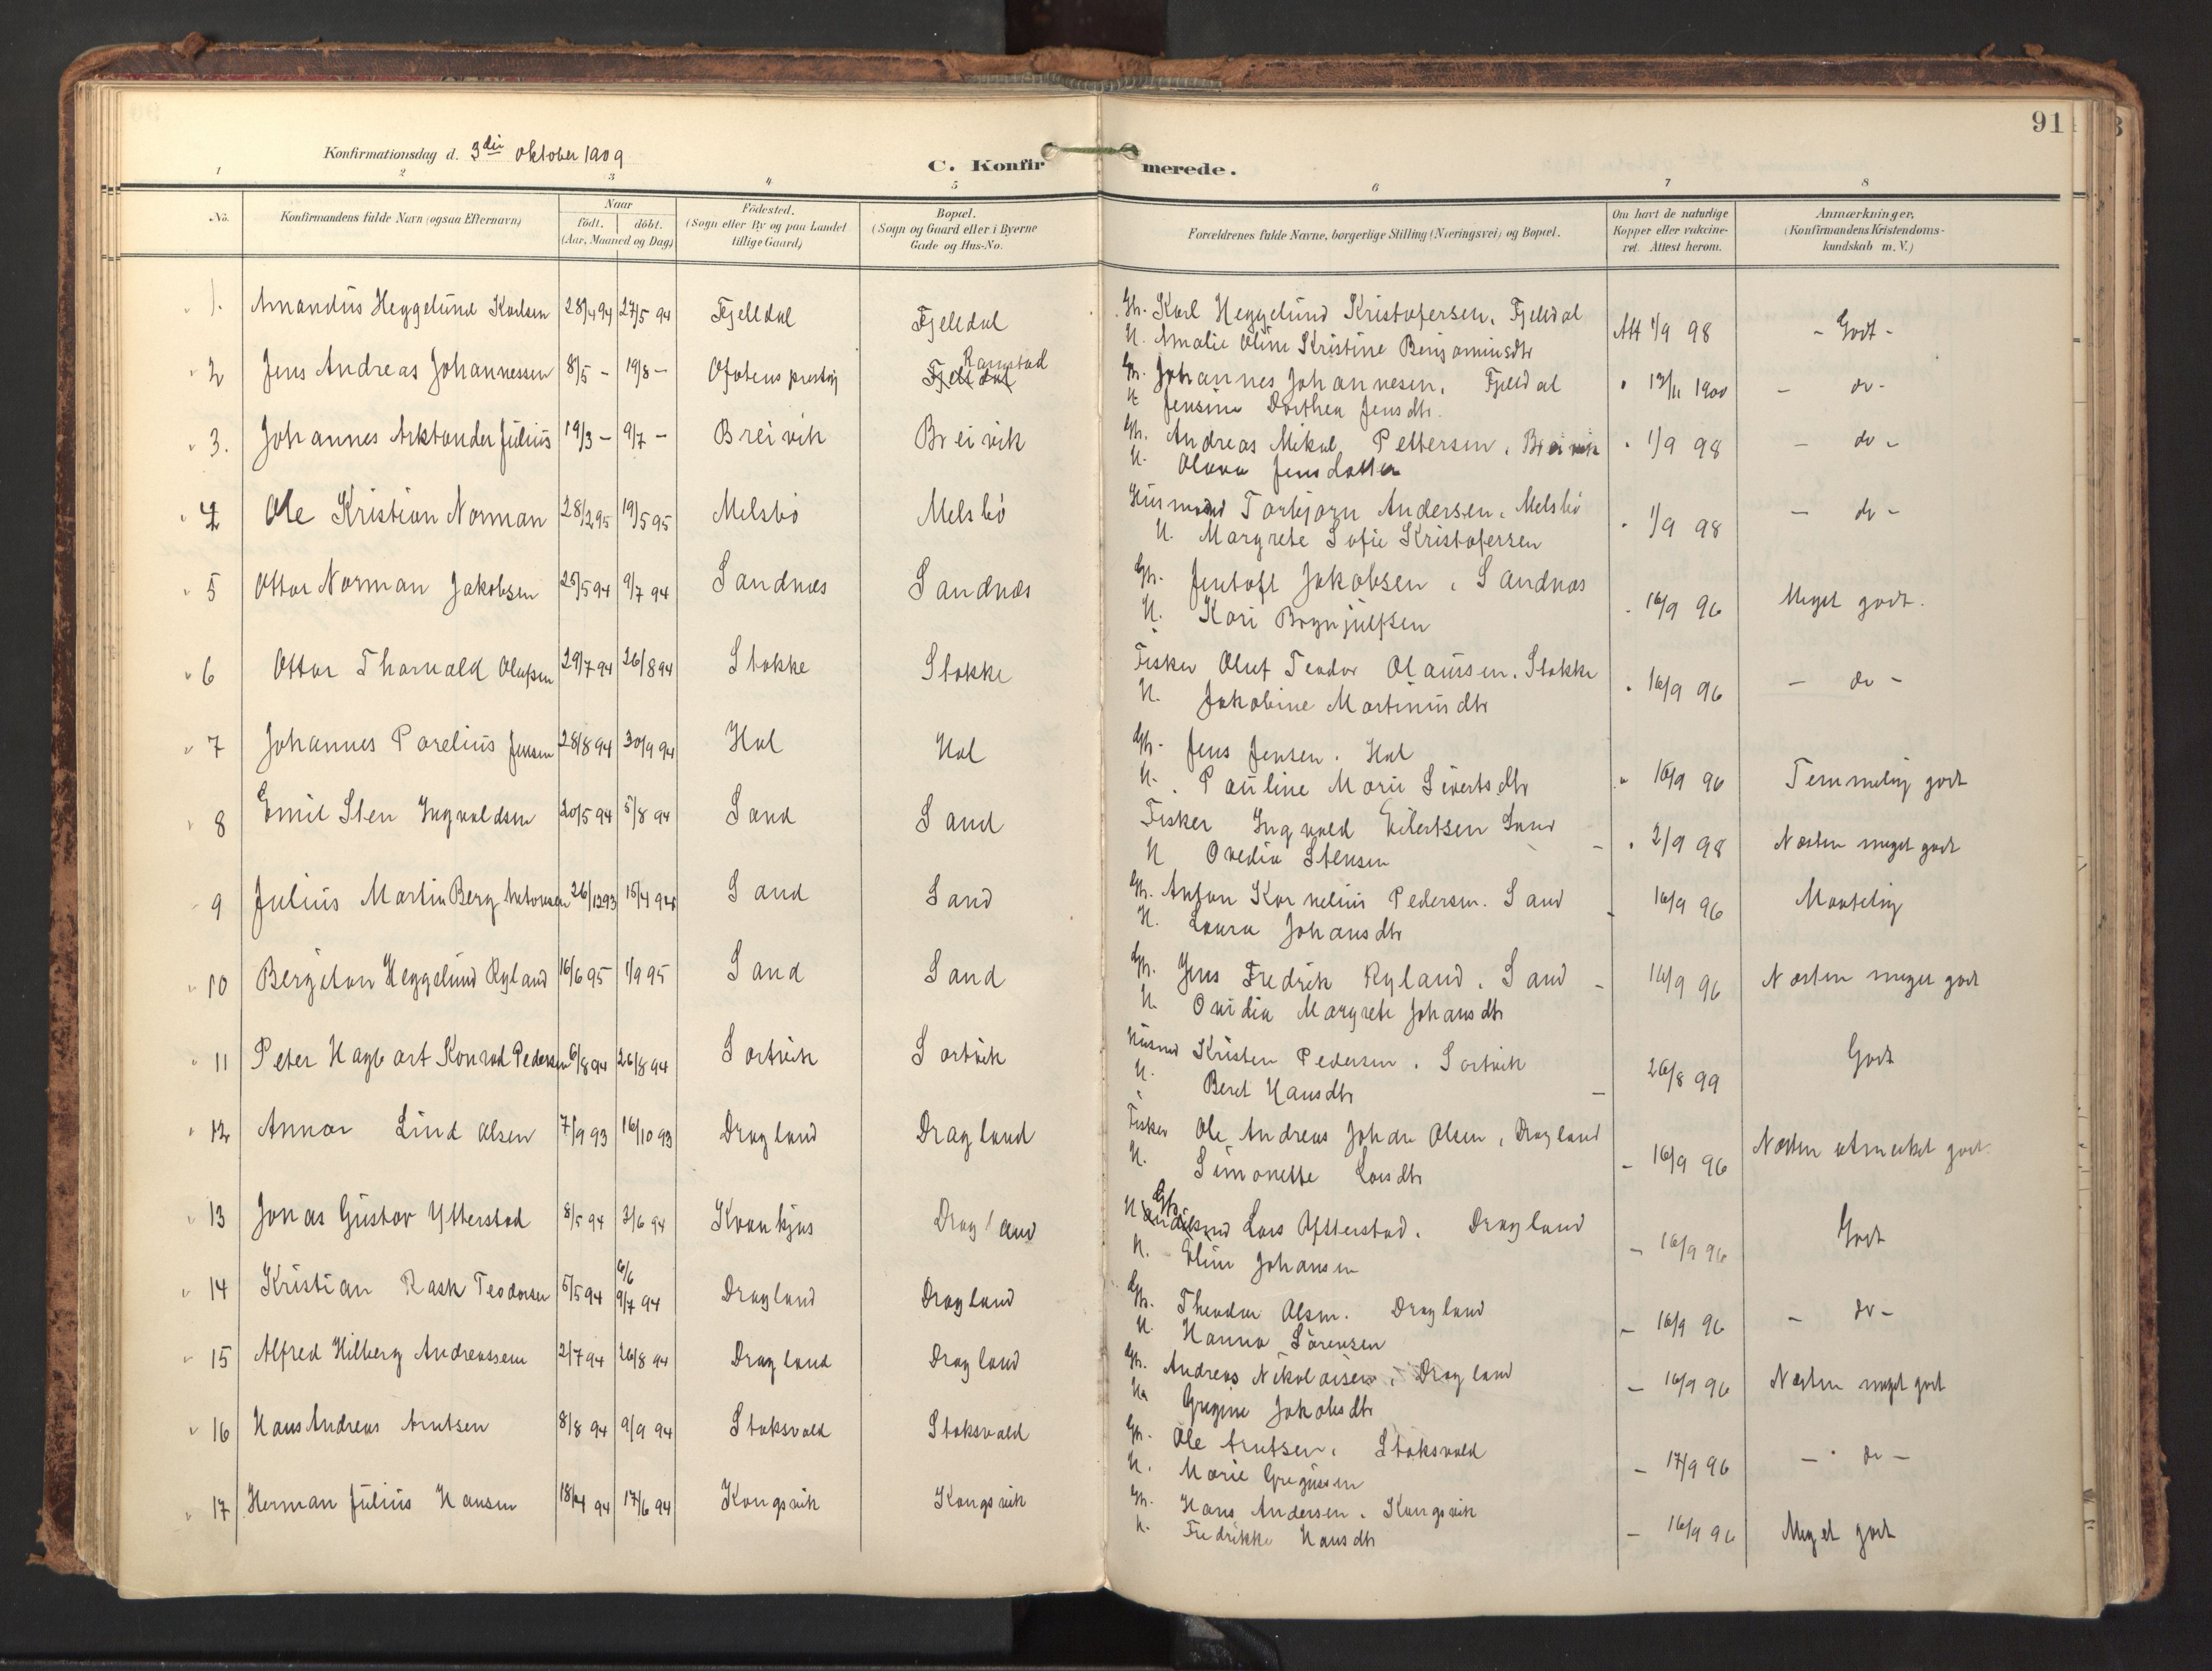 91
Konfirmationsdag d. 3die Oktober 1909
C. Konfirmerede.
1 2 3 4 5 6 7 8
No. Konfirmandens fulde Navn (ogsaa Efternavn) Naar födt. döbt. (Aar, Maaned og Dag) Födested. (Sogn eller By og paa Landet tillige Gaard) Bopæl. (Sogn og Gaard eller i Byerne Gade og Hus-No. Forældrenes fulde Navne, borgerlige Stilling (Næringsvei) og Bopæl. Om havt de naturlige Kopper eller vakcineret. Attest herom. Anmærkninger. (Konfirmandens Kristendomskundskab m. V.)
1. Amandus Heggelund Karlsen 28/4 94 27/5 94 Fjelldal Fjelldal Gbr. Karl Heggelund Kristofersen, Fjelldal Att 1/9 98 - Godt -
H. Amalie Oline Kristine Benjaminsdtr
2 Jens Andreas Johannessen 8/5 - 19/8 - Ofotens prestgj Fjelldal Ramstad Gbr. Johannes Johannesen, Fjelldal " 13/11 1900 - do -
H. Jensine Dorthea Jensdtr.
3. Johannes Arktander Julius 19/3 - 9/7 - Breivik Breivik Gbr. Andreas Mikal Pettersen, Breivik " 1/9 98 - do -
H. Olava Jensdatter
4 Ole Kristian Norman 28/2 95 19/5 95 Melsbö Melsbö Husmand Torbjørn Andersen, Melsbö " 1/9 98 - do -
H. Margrete Sofie Kristofersen
5 Ottar Norman Jakobsen 25/5 94 9/7 94 Sandnæs Sandnæs Gbr. Jentoft Jakobsen, Sandnæs - 16/9 96 Meget godt.
H. Kari Brynjulfsen
6 Ottar Thorvald Olufsen 29/7 94 26/8 94 Stokke Stokke Fisker Oluf Teodor Olaussen. Stokke " 16/9 96 - do -
H. Jakobine Martinusdtr
7 Johannes Parelius Jensen 28/8 94 30/9 94 Hol Hol Gbr. Jens Jensen. Hol " 16/9 96 Temmelig godt
H. Pauline Marie Sivertsdtr
8 Emil Sten Ingvaldsen 20/5 94 5/8 94 Sand Sand Fisker Ingvald Eilertsen Sand " 2/9 98 Næsten meget godt
H Ovedia Stensen
9 Julius Martin Berg Antonsen 26/12 93 15/4 94 Sand Sand Gbr. Anton Kornelius Pedersen. Sand - 16/9 96 Maatelig
H. Laura Johansdtr
10 Bergiton Heggelund Ryland 16/6 95 1/9 95 Sand Sand Gbr. Jens Fredrik Ryland. Sand - 16/9 96 Næsten meget godt
H. Ovidia Margrete Johansdtr
11 Peter Hagbart Konrad Pedersen 6/8 94 26/8 94 Sortvik Sortvik Husmd Kristen Pedersen. Sortvik - 26/8 99 Godt
H. Beret Hansdtr
12 Annar Lind Olsen 7/9 93 16/10 93 Dragland Dragland Fisker Ole Andreas Johan Olsen, Dragland - 16/9 96 Næsten utmerket godt.
H. Simonette Larsdtr
13 Jonas Gustav Ytterstad 8/5 94 3/6 94 Kvankjos Dragland Gbr. Lars Ytterstad. Dragland - 16/9 96 Godt
H. Eline Johansen
14 Kristian Rask Teodorsen 5/5 94 6/6 9/7 94 Dragland Dragland Gbr. Theodor Olsen. Dragland - 16/9 96 - do -
H. Hanna Sörensen
15 Alfred Hilberg Andreassen 2/7 94 26/8 94 Dragland Dragland Gbr. Andreas Nikolaisen, Dragland - 16/9 96 Næsten meget godt
H. Gregine Jakobsdtr
16 Hans Andreas Arntsen 8/8 94 9/9 94 Stoksvold Stoksvold Gbr. Ole Arntsen, Stoksvold - 17/9 96 - do -
H. Marie Gregussen
17 Herman Julius Hansen 18/4 94 17/6 94 Kongsvik Kongsvik Gbr. Hans Andersen. Kongsvik - 16/9 96 Meget godt
H. Fredrikke Hansdtr